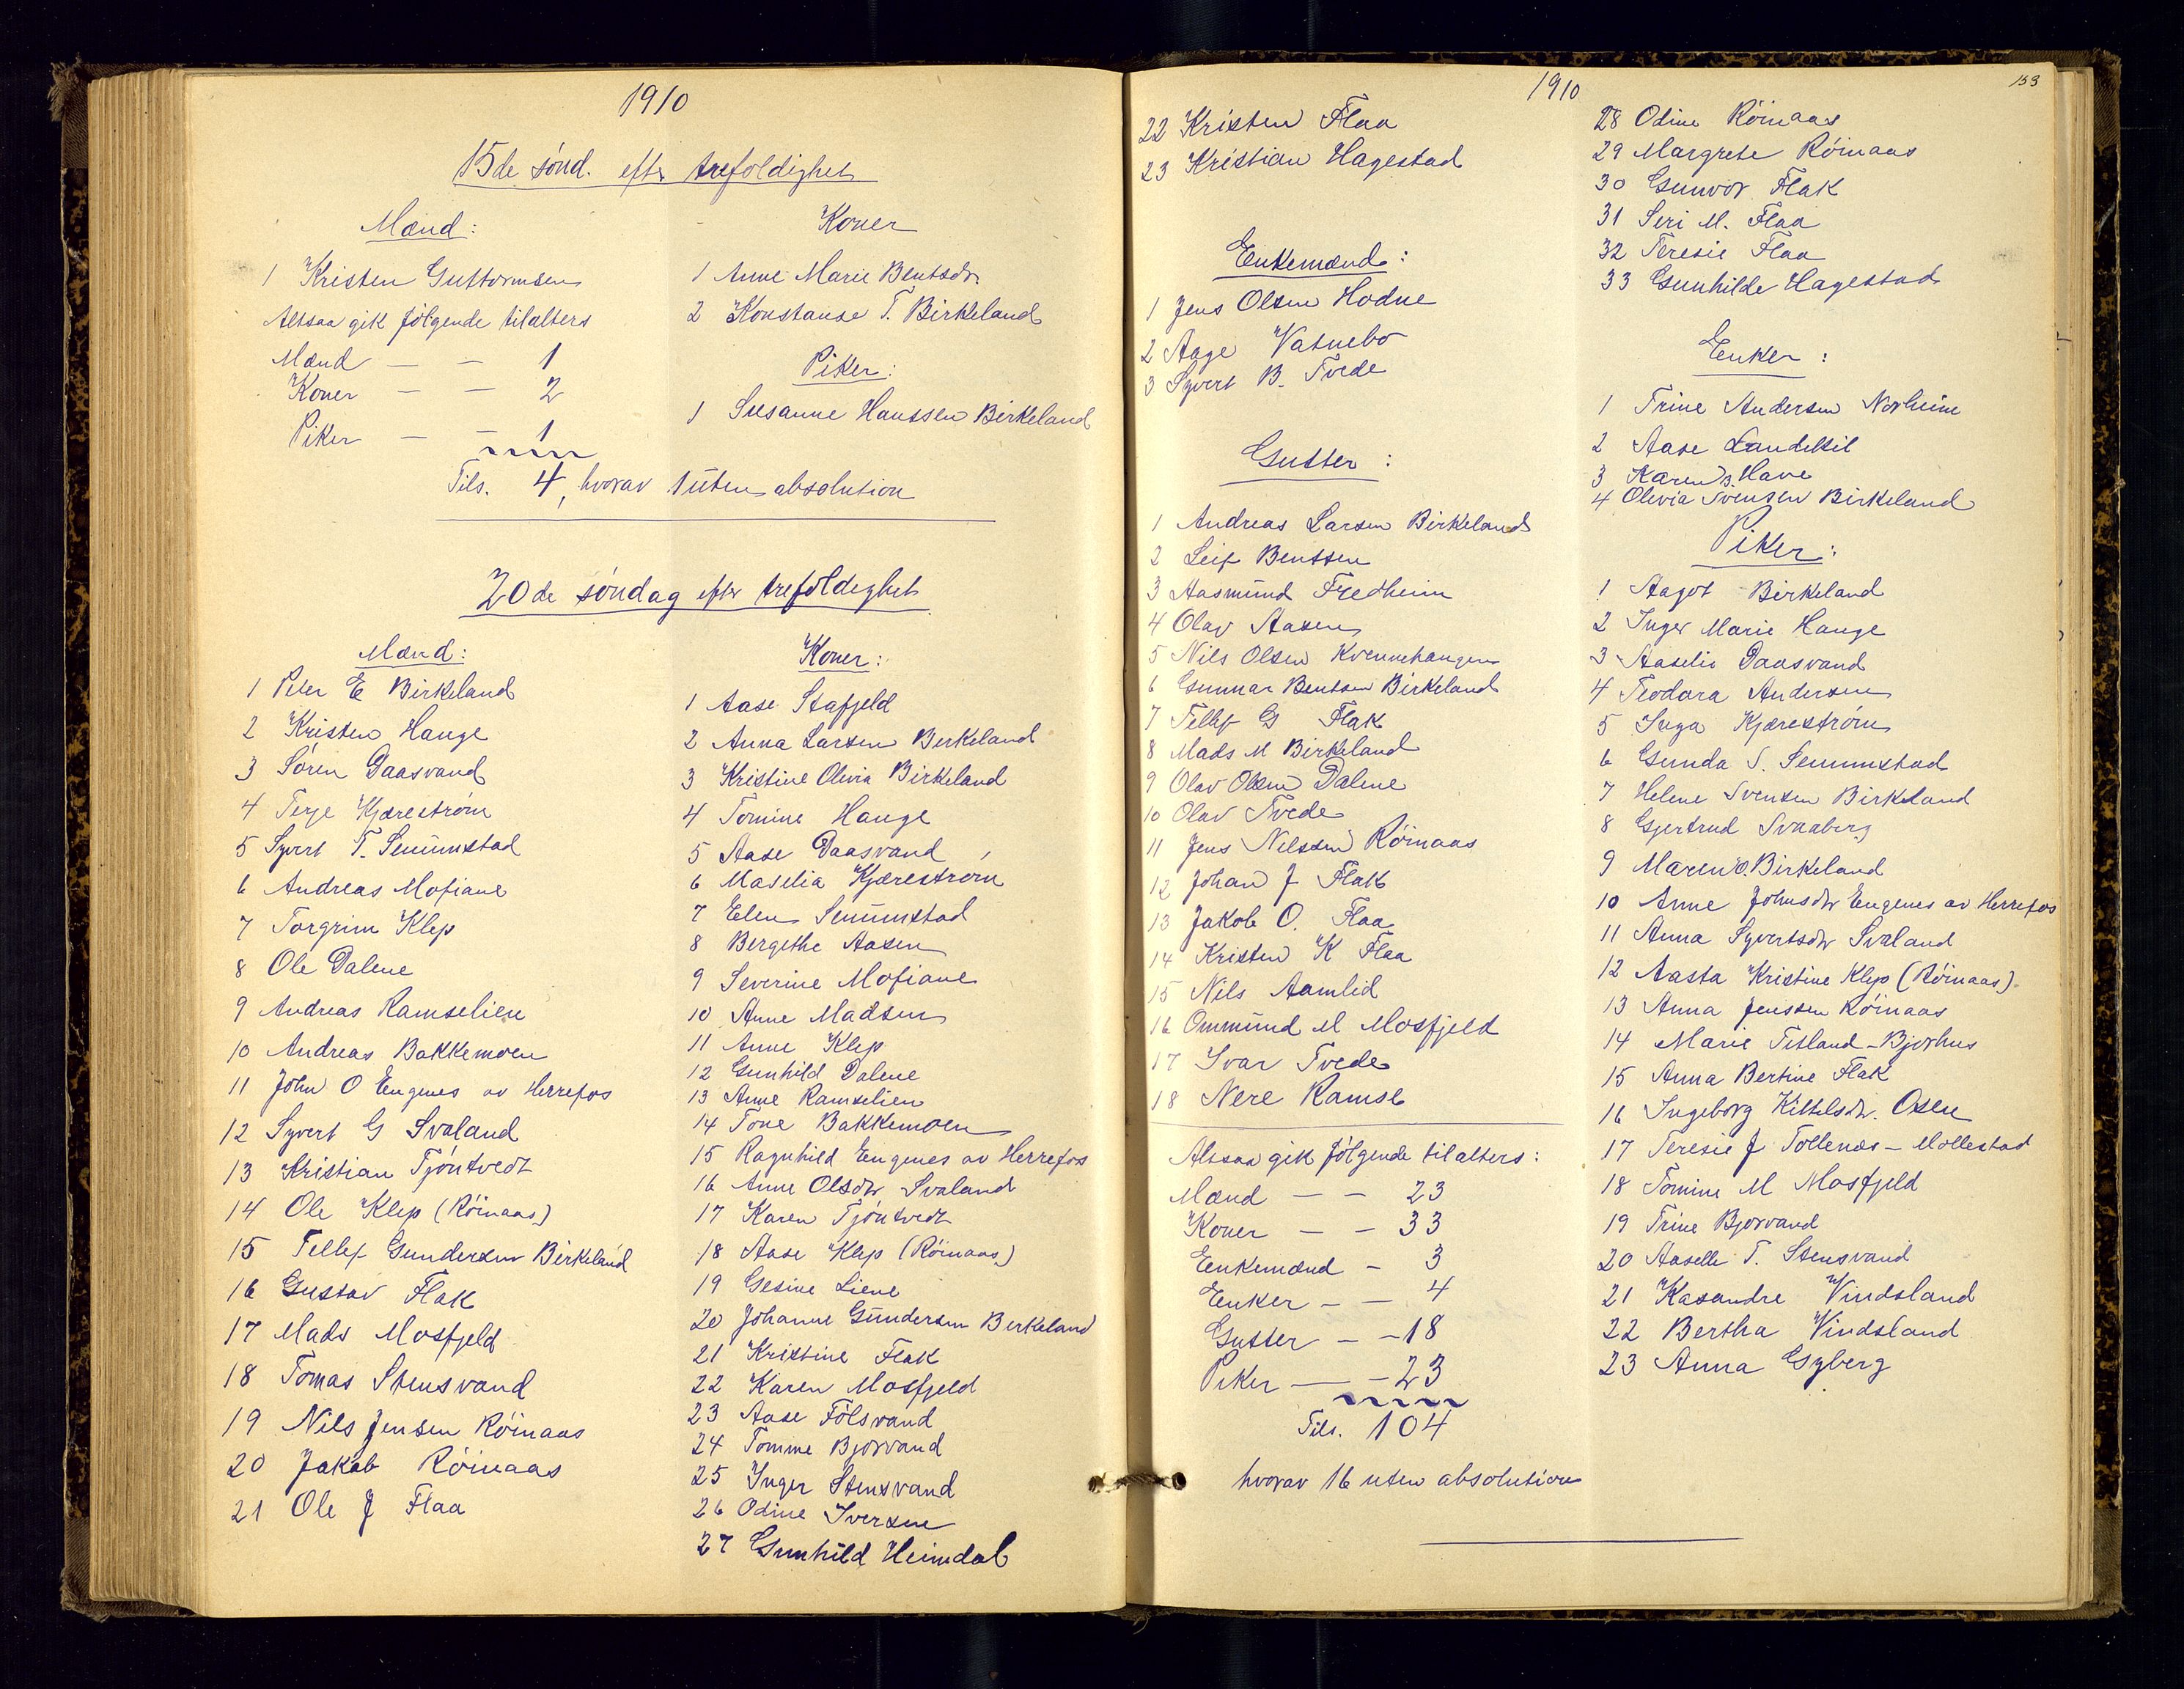 1910
15de sönd. eftr trefoldighet
Mænd:
1 Kristen Guttormsen
Altsaa gik følgende tilalters
Mænd — — 1
Koner — — 2
Piker — — 1
Tils. 4, hvorav 1 üten absolution
Koner
1 Anne Marie Bentsdr.
2 Konstanse T. Birkeland
Piker:
1 Susanne Hanssen Birkeland
20de söndag eftr trefoldighet
Mænd:
1 Peter E Birkeland
2 Kristen Hauge
3 Sören Daasvand
4 Terje Kjærestrøm
5 Syvert T. Senumstad
6 Andreas Mofiane
7 Torgrim Klep
8 Ole Dalene
9 Andreas Ramselien
10 Andreas Bakkemoen
11 John O Eugenes av Herrefos
12 Syvert G Svaland
13 Kristian Tjöntvedt
14 Ole Klep (Röinaas)
15 Tellef Gundersen Birkeland
16 Gustav Flak
17 Mads Mosfjeld
18 Tomas Stensvand
19 Nils Jensen Röinaas
20 Jakob Röinaas
21 Ole J Flaa
Koner:
1 Aase Stafjeld
2 Anna Larsen Birkeland
3 Kristine Olivia Birkeland
4 Tomine Hauge
5 Aase Daasvand
6 Maselia Kjærestrøm
7 Elen Senumstad
8 Bergithe Aasen
9 Severine Mofiane
10 Anne Madsen
11 Anne Klep
12 Gunhild Dalene
13 Anne Ramselien
14 Tone Bakkemoen
15 Ragnhild Eugenes av Herrefos
16 Anne Olsdtr Svaland
17 Karen Tjöntvedt
18 Aase Klep (Röinaas)
19 Gesine Liene
20 Johanne Gündersen Birkeland
21 Kristine Flak
22 Karen Mosfjeld
23 Aase Fölsvand
24 Tomine Bjorvand
25 Inger Stensvand
26 Odine Iversen
27 Gunhild Heimdal
1910
133
22 Kristen Flaa
23 Kristian Hagestad
Enkemænd:
1 Jens Olsen Hodne
2 Aage Vatnebo
3 Syvert B. Tvede
Gutter:
1 Andreas Larsen Birkeland
2 Leif Bentsen
3 Aasmund Fredheim
4 Olav Aasen
5 Nils Olsen Kvennehaugen
6 Gunnar Bentsen Birkeland
7 Tellef G Flak
8 Mads M Birkeland
9 Olav Olsen Dalene
10 Olav Tvede
11 Jens Nilssen Röinaas
12 Johan J Flak
13 Jakob O. Flaa
14 Kristen K Flaa
15 Nils Aamlid
16 Ommund M Mosfjeld
17 Ivar Tvede
18 Nere Ramse
Altsaa gik følgende tilalters:
Mænd — — 23
Koner — — 33
Enkemænd — 3
Enker — — 4
Gutter — — 18
Piker — — 23
Tils. 104
hvorav 16 uten absolution
28 Odine Röinaas
29 Margrete Röinaas
30 Gunvor Flak
31 Seri M. Flaa
32 Teresie Flaa
33 Gunhilde Hagestad
Enker:
1 Trine Andersen Norheim
2 Aase Landekil
3 Karen B. Have
4 Olevia Svensen Birkeland
Piker:
1 Aagot Birkeland
2 Inger Marie Hauge
3 Aaselie Daasvand
4 Teodora Andersen
5 Inga Kjærestrøm
6 Gunda S. Senumstad
7 Helene Svensen Birkeland
8 Gjertrud Svaaberg
9 Maren O. Birkeland
10 Anne Johnsdtr Eugenes av Herrefos
11 Anna Syvertsdtr Svaland
12 Aasta Kristine Klep (Röinaas).
13 Anna Jenssen Röinaas
14 Marie Titland - Bjorhus
15 Anna Bertine Flak
16 Ingeborg Kittelsdtr. Osen
17 Teresie J Tollenæs - Mollestad
18 Tomine M Mosfjeld
19 Trine Bjorvand
20 Aaselle T. Stensvand
21 Kasandre Vindsland
22 Bertha Vindsland
23 Anna Gyberg